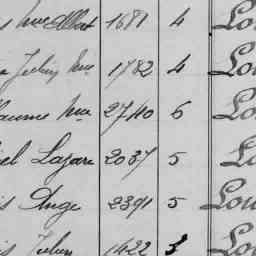 Albert 1681 4 Lou
Julien Mie 1782 4 Lou
laume Mie 2740 6 Lo
el Lazare 2037 5 Lo
is Ange 2391 5 Lou
is Julien 1422 3 Lou